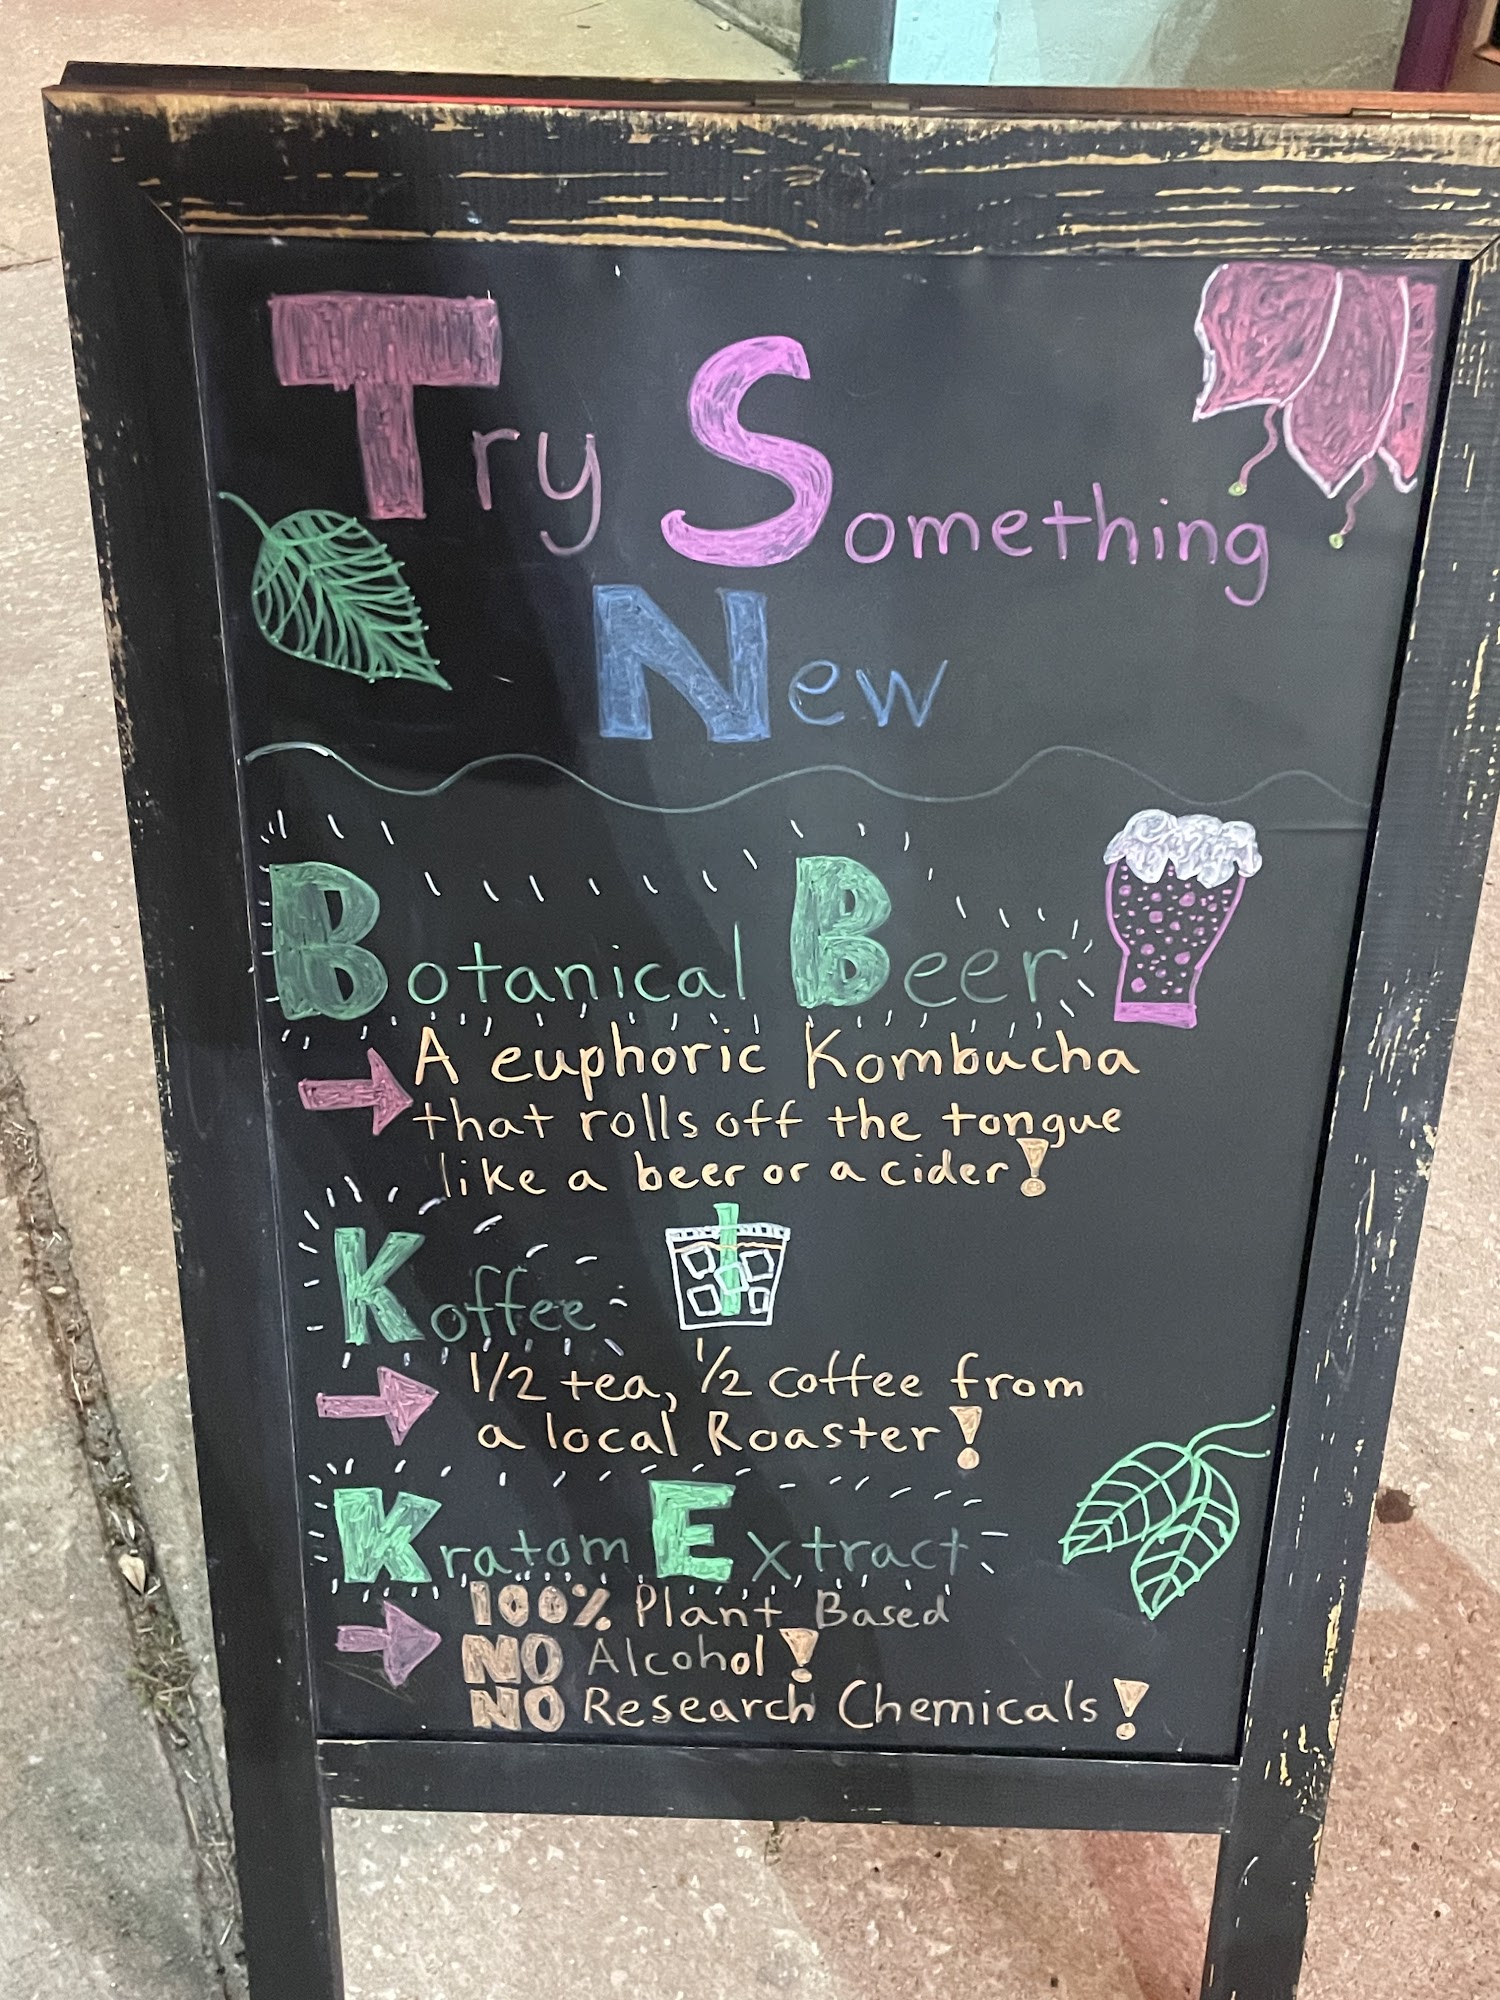 Try Something
New
Botanical Beer
A euphoric Kombucha
that rolls off the tongue
like a beer or a cider!
Koffee
1/2 tea, 1/2 coffee from
a local Roaster!
Kratom Extract
100% Plant Based
NO Alcohol!
NO Research Chemicals!